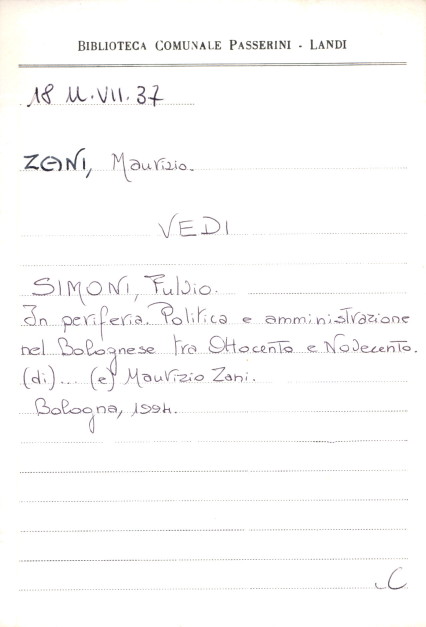 BIBLIOTECA COMUNALE PASSERINI - LANDI
18 U.VII.37
ZANI, Maurizio.
VEDI
SIMONI, Fulvio.
In periferia. Politica e amministrazione
nel Bolognese tra Ottocento e Novecento.
(di)... (e) Maurizio Zani.
Bologna, 1994.
C